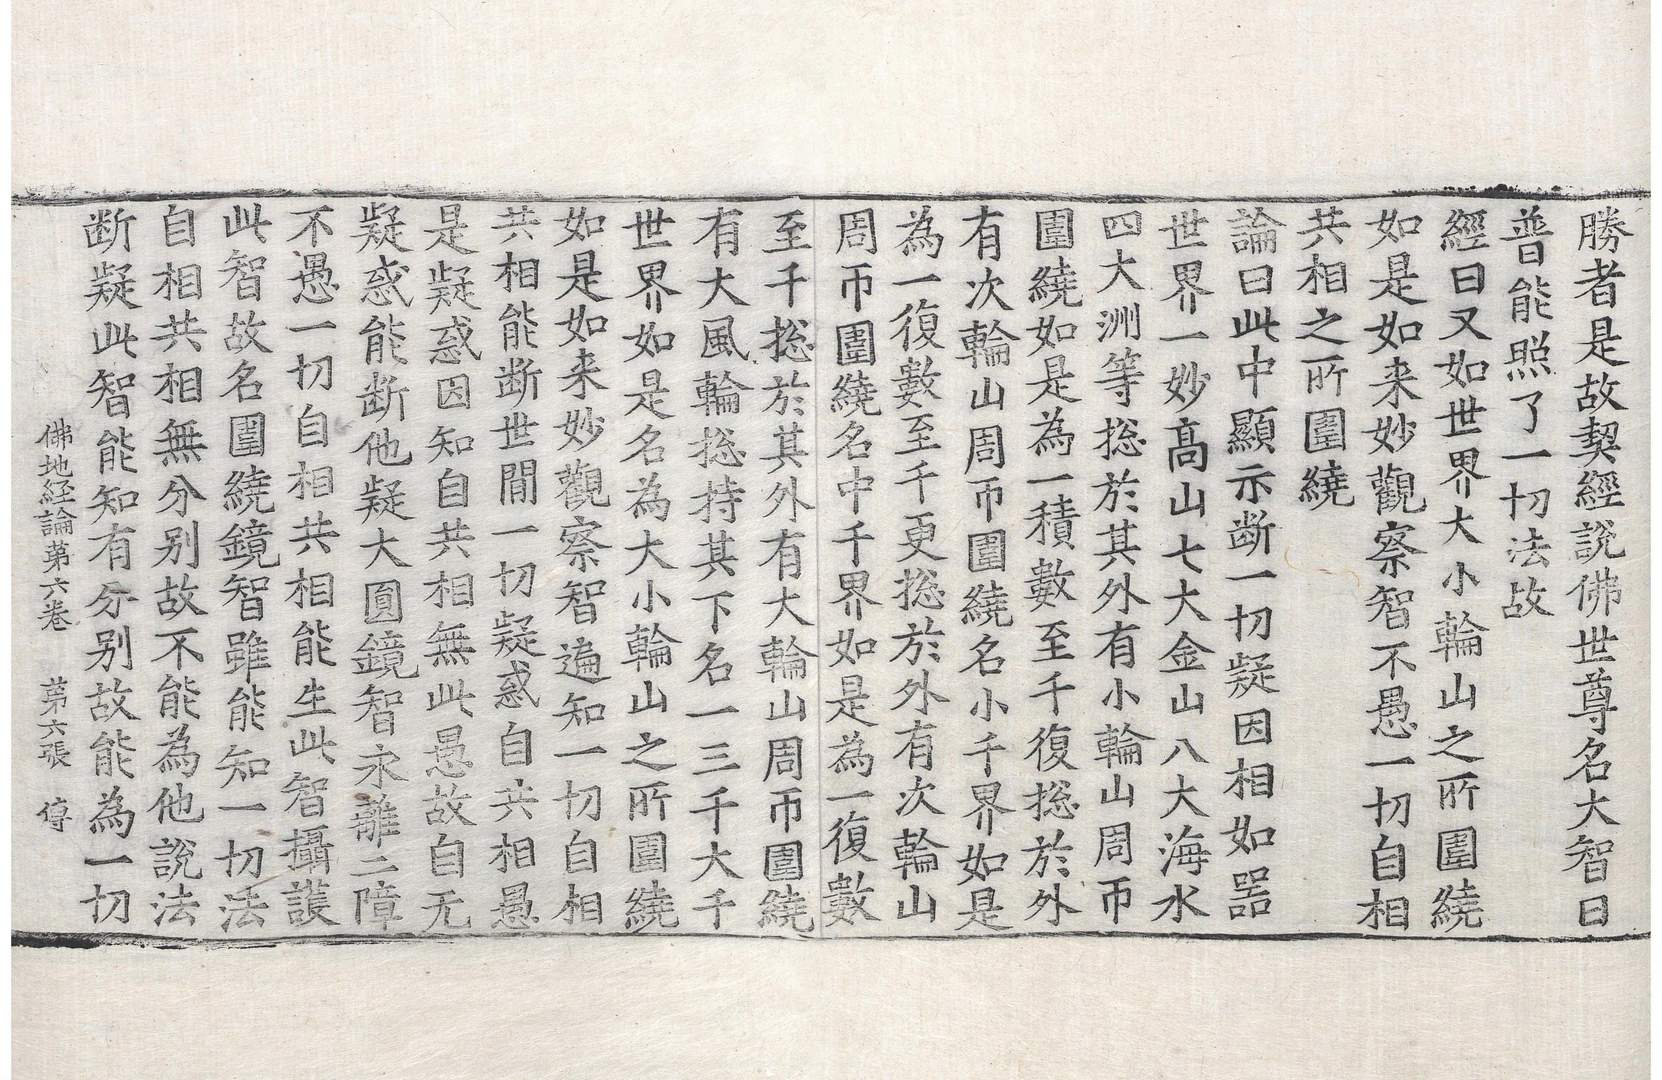 勝者是故契經說佛世尊名大智日
普能照了一切法故
經曰又如世界大小輪山之所圍繞
如是如来妙觀察智不愚一切自相
共相之所圍繞
論曰此中顯示断一切疑因相如器
世界一妙高山七大金山八大海水
四大洲等捴於其外有小輪山周帀
圍繞如是為一積數至千復捴於外
有次輪山周帀圍繞名小千界如是
為一復數至千更捴於外有次輪山
周帀圍繞名中千界如是為一復數
至千捴於其外有大輪山周帀圍繞
有大風輪捴持其下名一三千大千
世界如是名為大小輪山之所圍繞
如是如来妙觀察智遍知一切自相
共相能断世間一切疑惑自共相愚
是疑惑因知自共相無此愚故自无
疑惑能断他疑大圓鏡智永離二障
不愚一切自相共相能生此智攝護
此智故名圍繞鏡智雖能知一切法
自相共相無分別故不能為他說法
断疑此智能知有分別故能為一切
佛地経論第六卷 第六張 傳